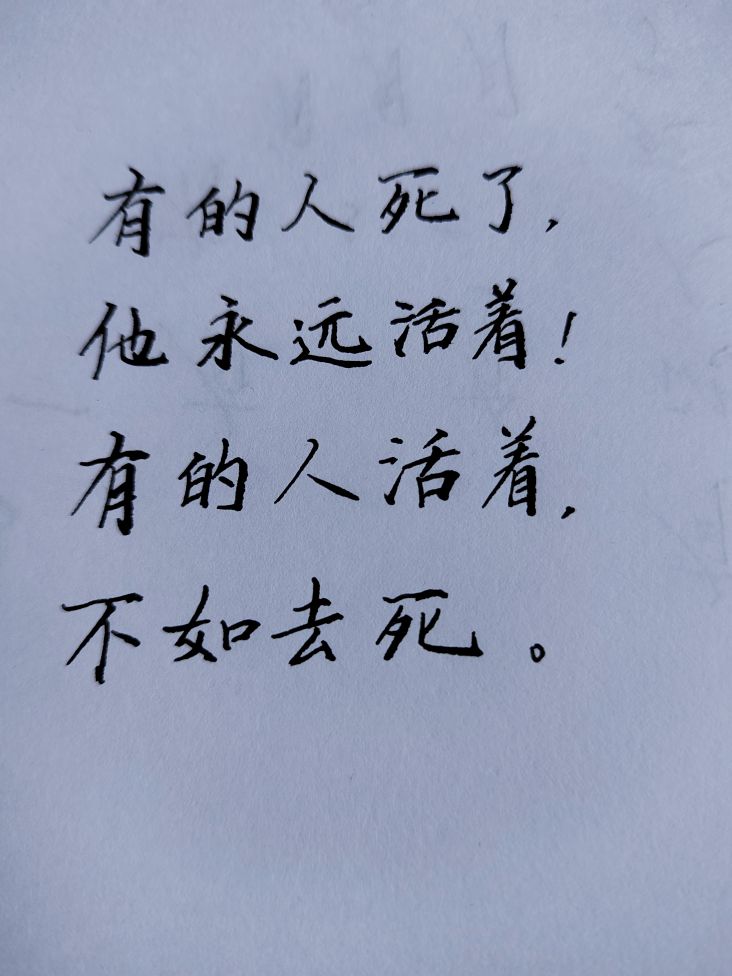 有的人死了，
他永远活着！
有的人活着，
不如去死。